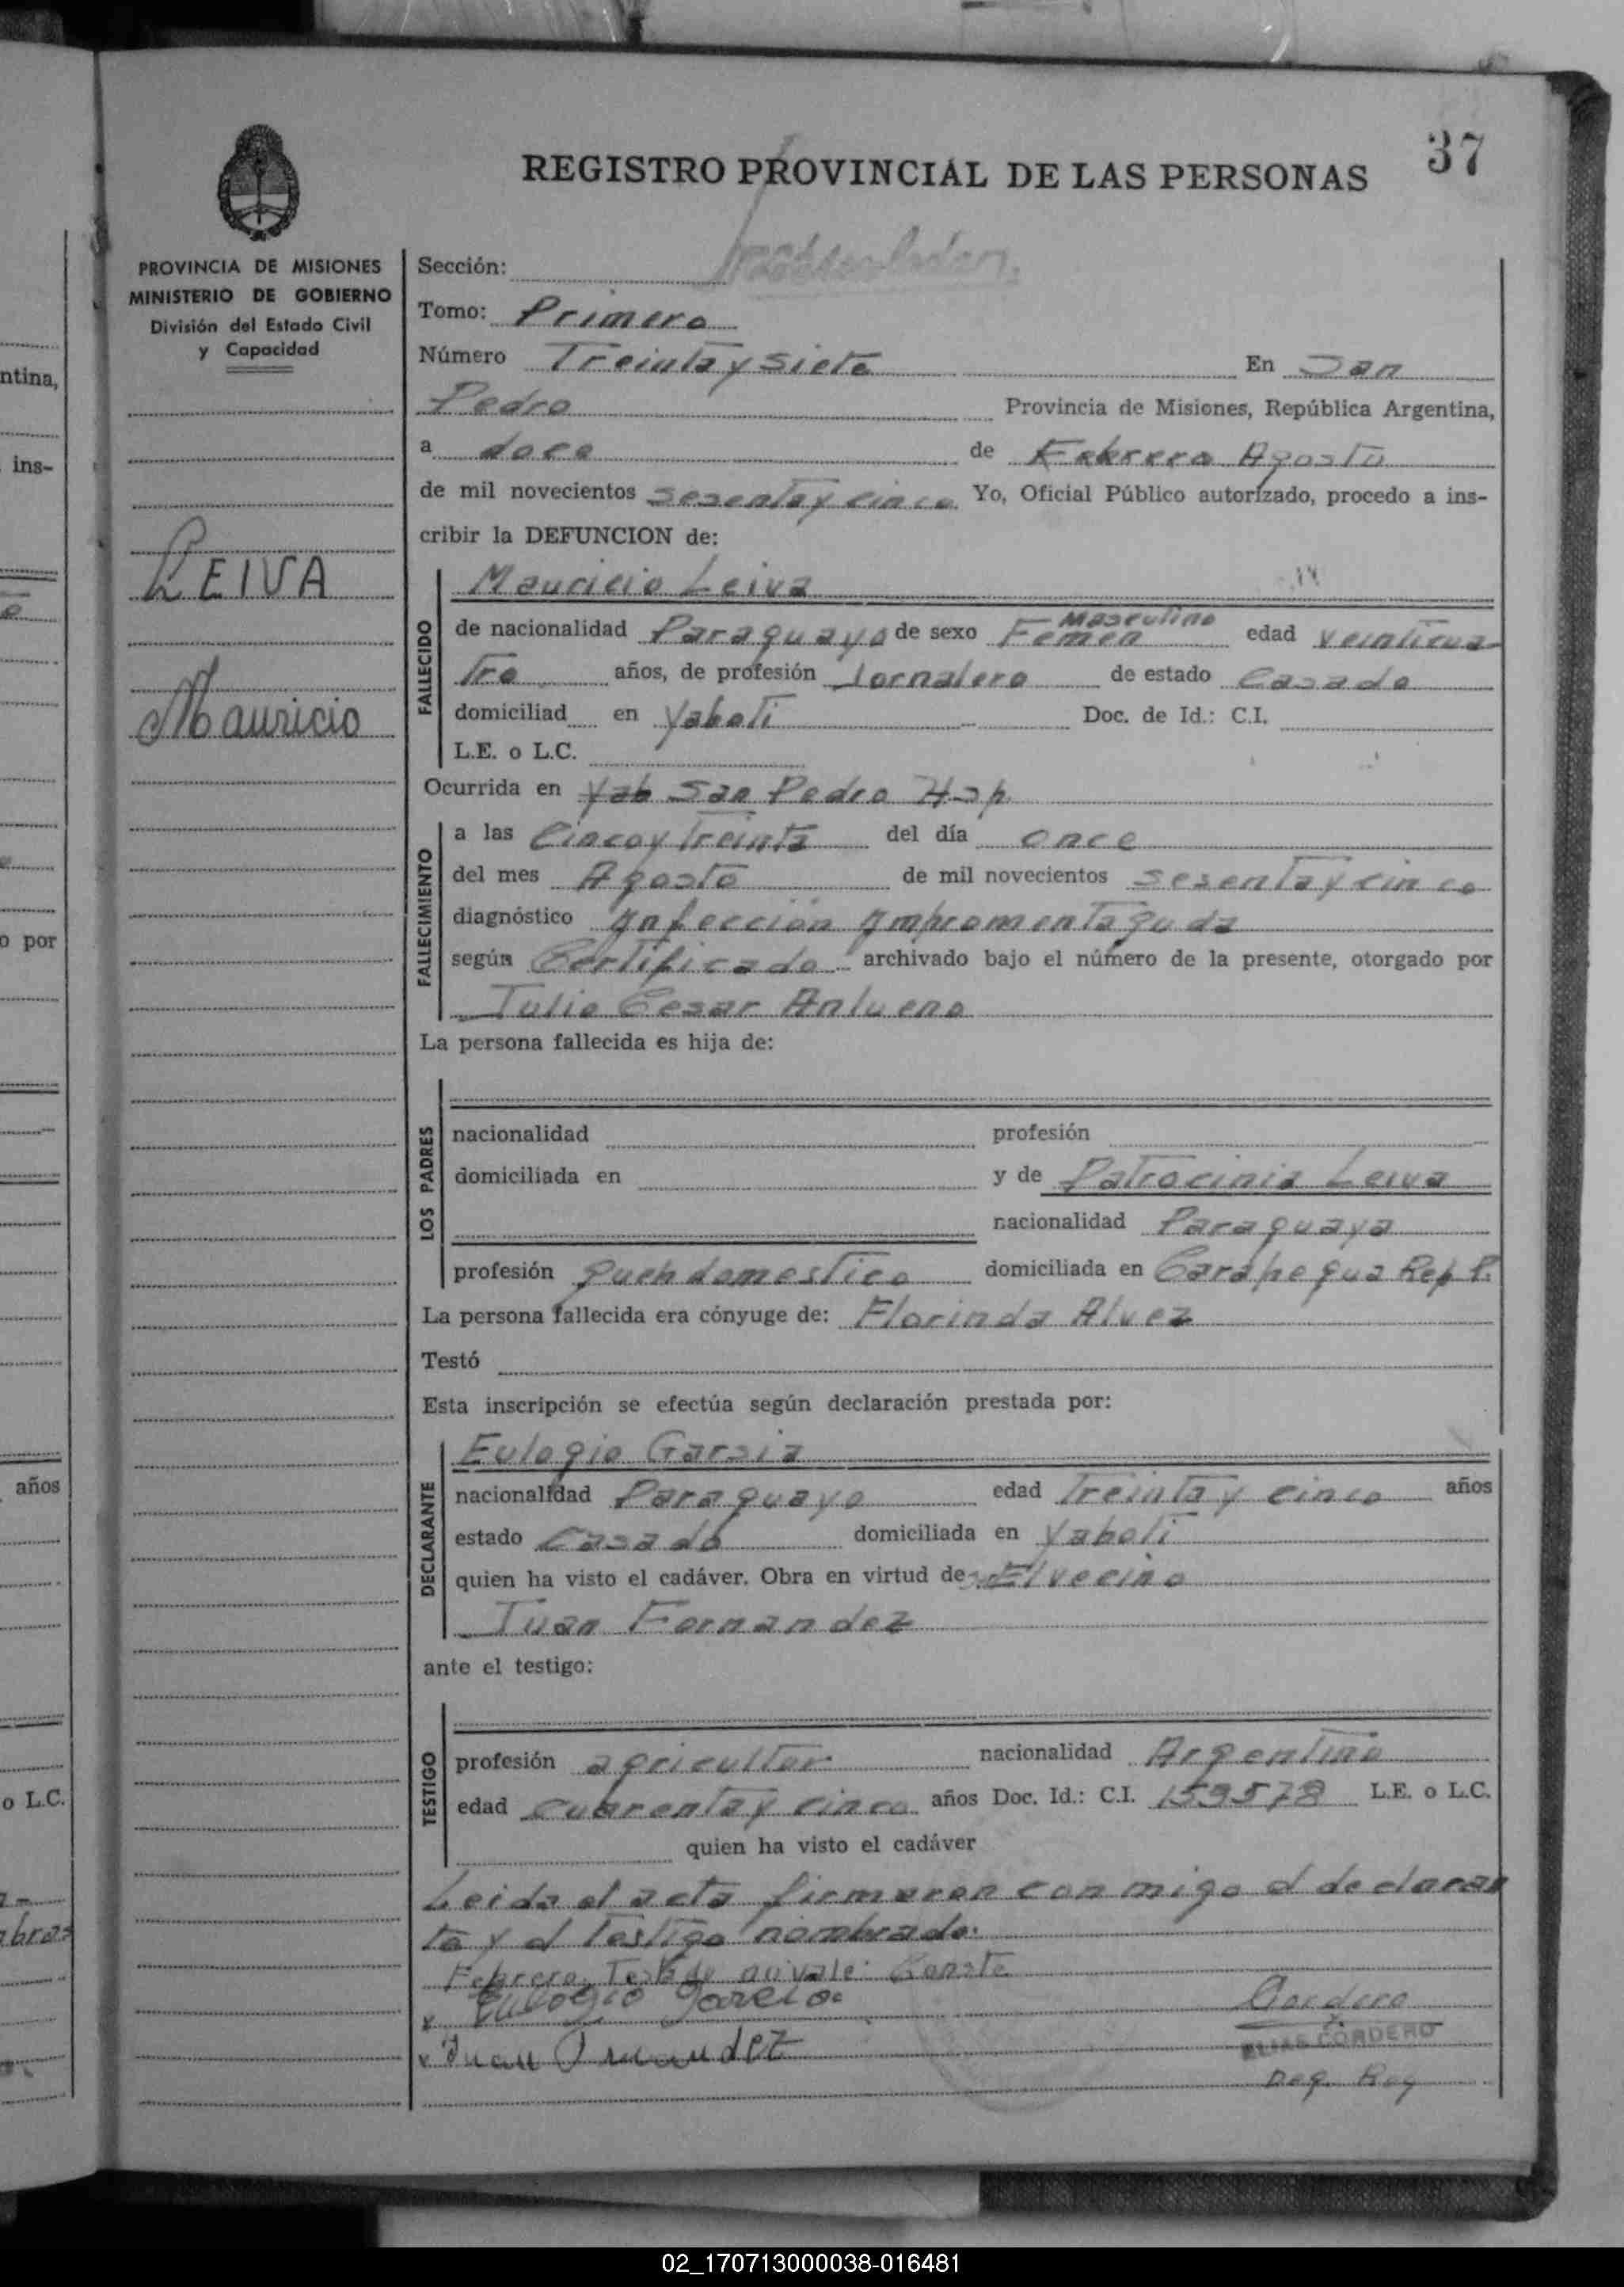 37
REGISTRO PROVINCIAL DE LAS PERSONAS
PROVINCIA DE MISIONES
MINISTERIO DE GOBIERNO
División del Estado Civil
y Capacidad
LEIVA
Mauricio
Sección:
Tomo: Primero
Número Treinta y siete En San
Pedro Provincia de Misiones, República Argentina,
a doce de Febrero Agosto
de mil novecientos sesenta y cinco Yo, Oficial Público autorizado, procedo a ins-
cribir la DEFUNCION de:
FALLECIDO
Mauricio Leiva
Masculino
de nacionalidad Paraguayo de sexo Femen edad veinticua
tro años, de profesión Jornalero de estado Casado
domiciliad en Yaboti Doc. de Id.: C.I.
L.E. o L.C.
Ocurrida en Yab San Pedro Hsp.
FALLECIMIENTO
a las Cinco y treinta del día once
del mes Agosto de mil novecientos sesenta y cinco
diagnóstico Infección
según Certificado archivado bajo el número de la presente, otorgado por
Julio Cesar
La persona fallecida es hija de:
LOS PADRES
nacionalidad profesión
domiciliada en y de Patrocinia Leiva
nacionalidad Paraguaya
profesión domestico domiciliada en Carapegua Rep P.
La persona fallecida era cónyuge de: Florinda Alvez
Testó
Esta inscripción se efectúa según declaración prestada por:
DECLARANTE
Eulogio Garsia
nacionalidad Paraguayo edad Treinta y cinco años
estado Casado domiciliada en Yaboti
quien ha visto el cadáver. Obra en virtud de El vecino
Juan Fernandez
ante el testigo:
TESTIGO
profesión agricultor nacionalidad Argentino
edad cuarenta y cinco años Doc. Id.: C.I. 159578 L.E. o L.C.
quien ha visto el cadáver
Leida el acta firmaron con migo el declaran
te y el testigo nombrado.
Febrero. Testado no vale: Conste
x Eulogio Garcia Cordero
x Juan Fernandez ELIAS CORDERO
Deg. Reg
ntina,
ins-
o por
años
o L.C.
02_170713000038-016481